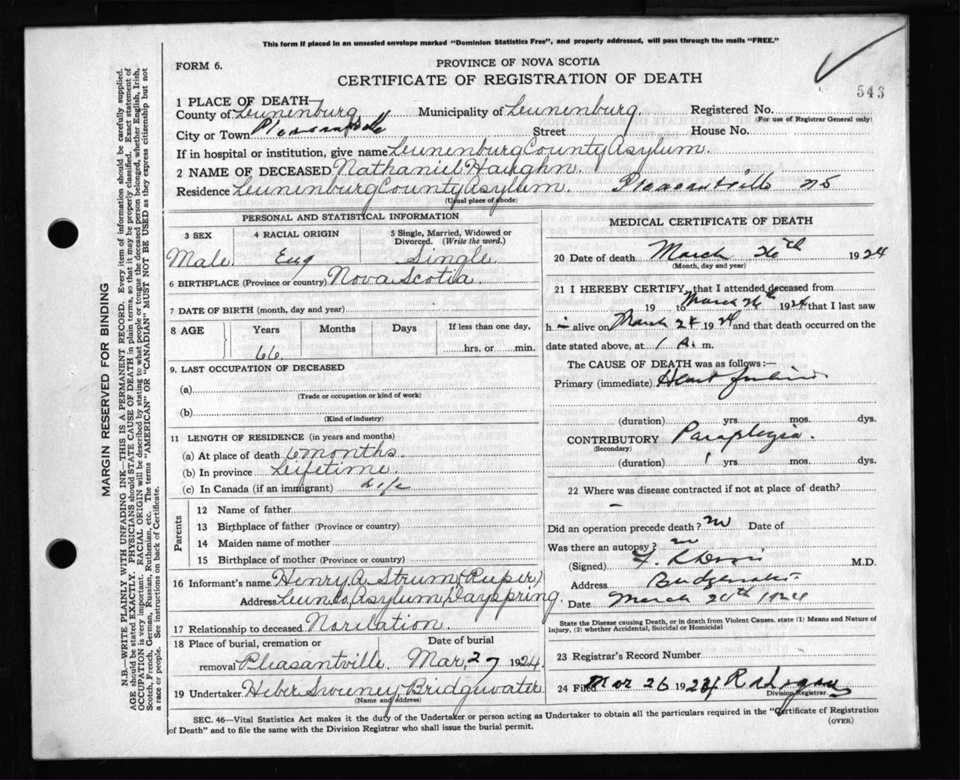 This form if placed in an unsealed envelope marked "Dominion Statistics Free", and properly addressed, will pass through the mails "FREE."
FORM 6.
PROVINCE OF NOVA SCOTIA
CERTIFICATE OF REGISTRATION OF DEATH
543
1 PLACE OF DEATH
County of Lunenburg Municipality of Lunenburg. Registered No.
(For use of Registrar General only)
City or Town Pleasantville Street House No.
If in hospital or institution, give name Lunenburg County Asylum.
2 NAME OF DECEASED Nathaniel Haughn.
Residence Lunenburg County Asylum. Pleasantville NS
(Usual place of abode)
PERSONAL AND STATISTICAL INFORMATION
3 SEX 4 RACIAL ORIGIN 5 Single, Married, Widowed or Divorced. (Write the word.)
Male. Eng Single
6 BIRTHPLACE (Province or country) Nova Scotia
7 DATE OF BIRTH (month, day and year)
8 AGE Years Months Days If less than one day,
66. hrs. or min.
9. LAST OCCUPATION OF DECEASED
(a)
(Trade or occupation or kind of work)
(b)
(Kind of industry)
11 LENGTH OF RESIDENCE (in years and months)
(a) At place of death 6 months.
(b) In province Lifetime.
(c) In Canada (if an immigrant) Life
Parents
12 Name of father
13 Birthplace of father (Province or country)
14 Maiden name of mother
15 Birthplace of mother (Province or country)
16 Informant's name Henry A. Strum (Kuper)
Address Lun Co, Asylum, Dayspring.
17 Relationship to deceased No relation.
18 Place of burial, cremation or removal Pleasantville. Date of burial Mar, 27 1924.
19 Undertaker Heber Sweeney, Bridgewater
(Name and address)
MEDICAL CERTIFICATE OF DEATH
20 Date of death March 26th 1924
(Month, day and year)
21 I HEREBY CERTIFY, that I attended deceased from
19 to March 24th 1924 that I last saw
h im alive on March 24 1924 and that death occurred on the
date stated above, at 1 A. m.
The CAUSE OF DEATH was as follows:—
Primary (immediate) Heart failure
(duration) yrs mos. dys.
CONTRIBUTORY Paraplegia.
(Secondary)
(duration) 1 yrs mos. dys.
22 Where was disease contracted if not at place of death?
Did an operation precede death? no Date of
Was there an autopsy? no
(Signed) M.D.
Address Bridgewater
Date March 1924
State the Disease causing Death, or in death from Violent Causes, state (1) Means and Nature of Injury, (2) whether Accidental, Suicidal or Homicidal
23 Registrar's Record Number
24 Filed Mar 26 1924
Division Registrar
SEC. 46—Vital Statistics Act makes it the duty of the Undertaker or person acting as Undertaker to obtain all the particulars required in the "Certificate of Registration
of Death" and to file the same with the Division Registrar who shall issue the burial permit.
(OVER)
MARGIN RESERVED FOR BINDING
N.B.—WRITE PLAINLY WITH UNFADING INK—THIS IS A PERMANENT RECORD. Every item of information should be carefully supplied.
AGE should be stated EXACTLY. PHYSICIANS should STATE CAUSE OF DEATH in plain terms, so that it may be properly classified. Exact statement of
OCCUPATION is very important. RACIAL ORIGIN will be described by stating to what people or tongue the deceased person belonged, whether English, Irish,
Scotch, French, German, Russian, Ruthenian, etc. The terms "AMERICAN" or "CANADIAN" MUST NOT BE USED as they express citizenship but not
a race or people. See instructions on back of Certificate.